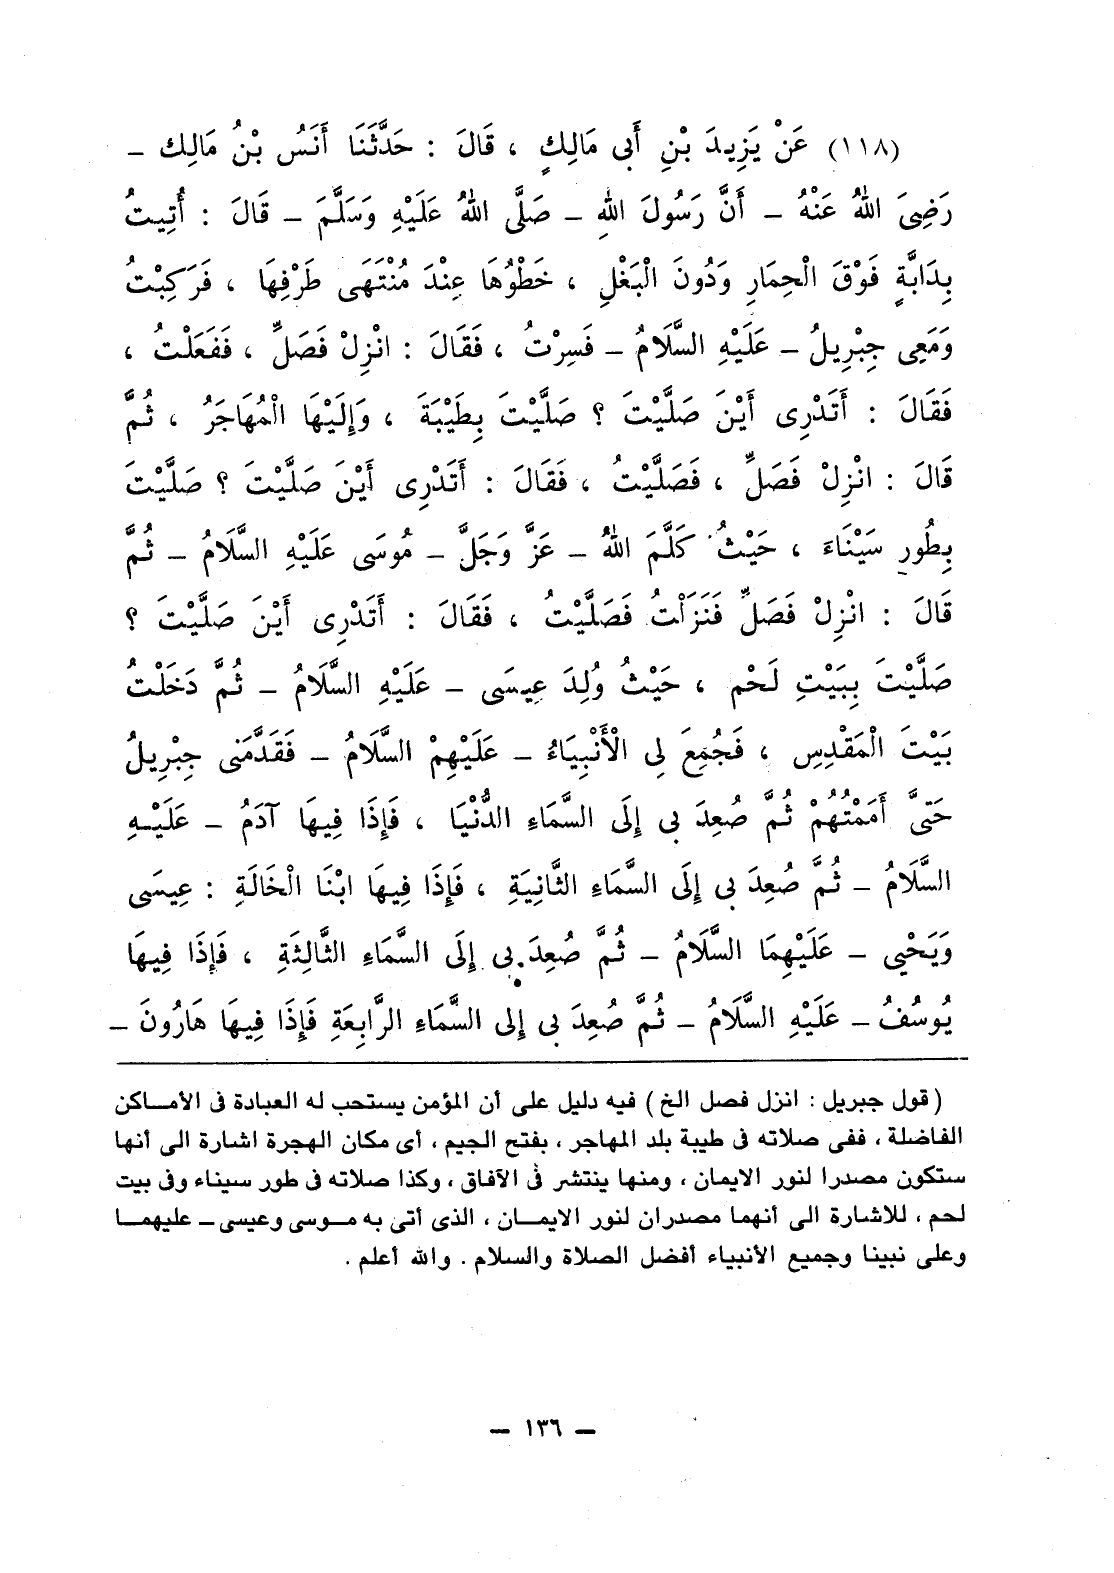 (١١٨) عَنْ يَزِيدَ بْنِ أَبِى مَالِكٍ ، قَالَ : حَدَّثَنَا أَنَسُ بْنُ مَالِك –
رَضِىَ اللهُ عَنْهُ – أَنَّ رَسُولَ اللهِ – صَلَّى اللهُ عَلَيْهِ وَسَلَّمَ – قَالَ : أُتِيتُ
بِدَابَّةٍ فَوْقَ الْحِمَارِ وَدُونَ الْبَغْلِ ، خَطْوُهَا عِنْدَ مُنْتَهَى طَرْفِهَا ، فَرَكِبْتُ
وَمَعِى جِبْرِيلُ – عَلَيْهِ السَّلَامُ – فَسِرْتُ ، فَقَالَ : انْزِلْ فَصَلِّ ، فَفَعَلْتُ ،
فَقَالَ : أَتَدْرِى أَيْنَ صَلَّيْتَ ؟ صَلَّيْتَ بِطَيْبَةَ ، وَإِلَيْهَا الْمُهَاجَرُ ، ثُمَّ
قَالَ : انْزِلْ فَصَلِّ ، فَصَلَّيْتُ ، فَقَالَ : أَتَدْرِى أَيْنَ صَلَّيْتَ ؟ صَلَّيْتَ
بِطُورِ سَيْنَاءَ ، حَيْثُ كَلَّمَ اللهُ – عَزَّ وَجَلَّ – مُوسَى عَلَيْهِ السَّلَامُ – ثُمَّ
قَالَ : انْزِلْ فَصَلِّ فَنَزَلْتُ فَصَلَّيْتُ ، فَقَالَ : أَتَدْرِى أَيْنَ صَلَّيْتَ ؟
صَلَّيْتَ بِبَيْتِ لَحْمٍ ، حَيْثُ وُلِدَ عِيسَى – عَلَيْهِ السَّلَامُ – ثُمَّ دَخَلْتُ
بَيْتَ الْمَقْدِسِ ، فَجُمِعَ لِى الْأَنْبِيَاءُ – عَلَيْهِمْ السَّلَامُ – فَقَدَّمَنِى جِبْرِيلُ
حَتَّى أَمَمْتُهُمْ ثُمَّ صُعِدَ بِى إِلَى السَّمَاءِ الدُّنْيَا ، فَإِذَا فِيهَا آدَمُ – عَلَيْهِ
السَّلَامُ – ثُمَّ صُعِدَ بِى إِلَى السَّمَاءِ الثَّانِيَةِ ، فَإِذَا فِيهَا ابْنَا الْخَالَةِ : عِيسَى
وَيَحْيِى – عَلَيْهِمَا السَّلَامُ – ثُمَّ صُعِدَ بِى إِلَى السَّمَاءِ الثَّالِثَةِ ، فَإِذَا فِيهَا
يُوسُفُ – عَلَيْهِ السَّلَامُ – ثُمَّ صُعِدَ بِى إِلى السَّمَاءِ الرَّابِعَةِ فَإِذَا فِيهَا هَارُونَ –
(قول جبريل : انزل فصل الخ) فيه دليل على أن المؤمن يستحب له العبادة فى الأماكن
الفاضلة ، ففى صلاته فى طيبة بلد المهاجر ، بفتح الجيم ، أى مكان الهجرة اشارة الى أنها
ستكون مصدرا لنور الايمان ، ومنها ينتشر فى الآفاق ، وكذا صلاته فى طور سيناء وفى بيت
لحم ، للاشارة الى أنهما مصدران لنور الايمان ، الذى أتى به موسى وعيسى – عليهما
وعلى نبينا وجميع الأنبياء أفضل الصلاة والسلام . والله أعلم .
– ١٣٦ –